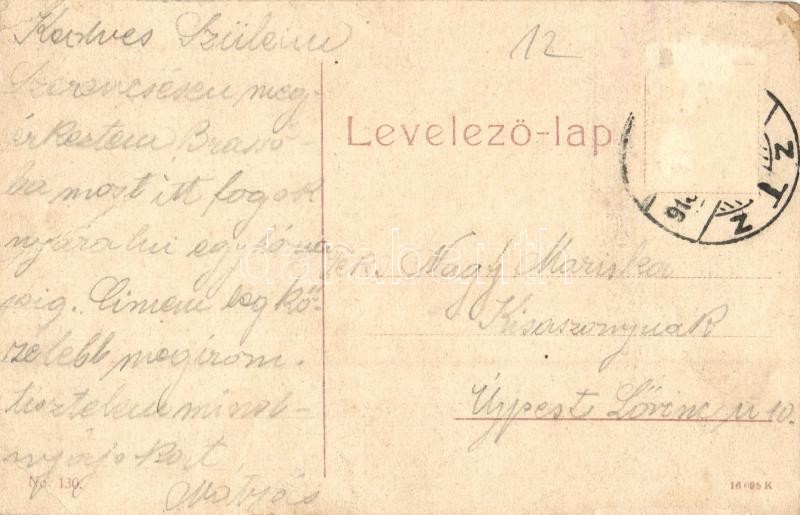 12
Kedves Szüleim
Szerencsésen meg-
érkeztem Brassó-
ba most itt fogok
nyáralni egy hóna
pig. Cimem leg kö-
zelebb megirom.
tisztelem mind-
nyájokat
Mátyás
Levelező-lap
Nagy Mariska
Kisaszonynak
Újpest Lőrinc u 10.
No. 130.
16 095 K
darabanth